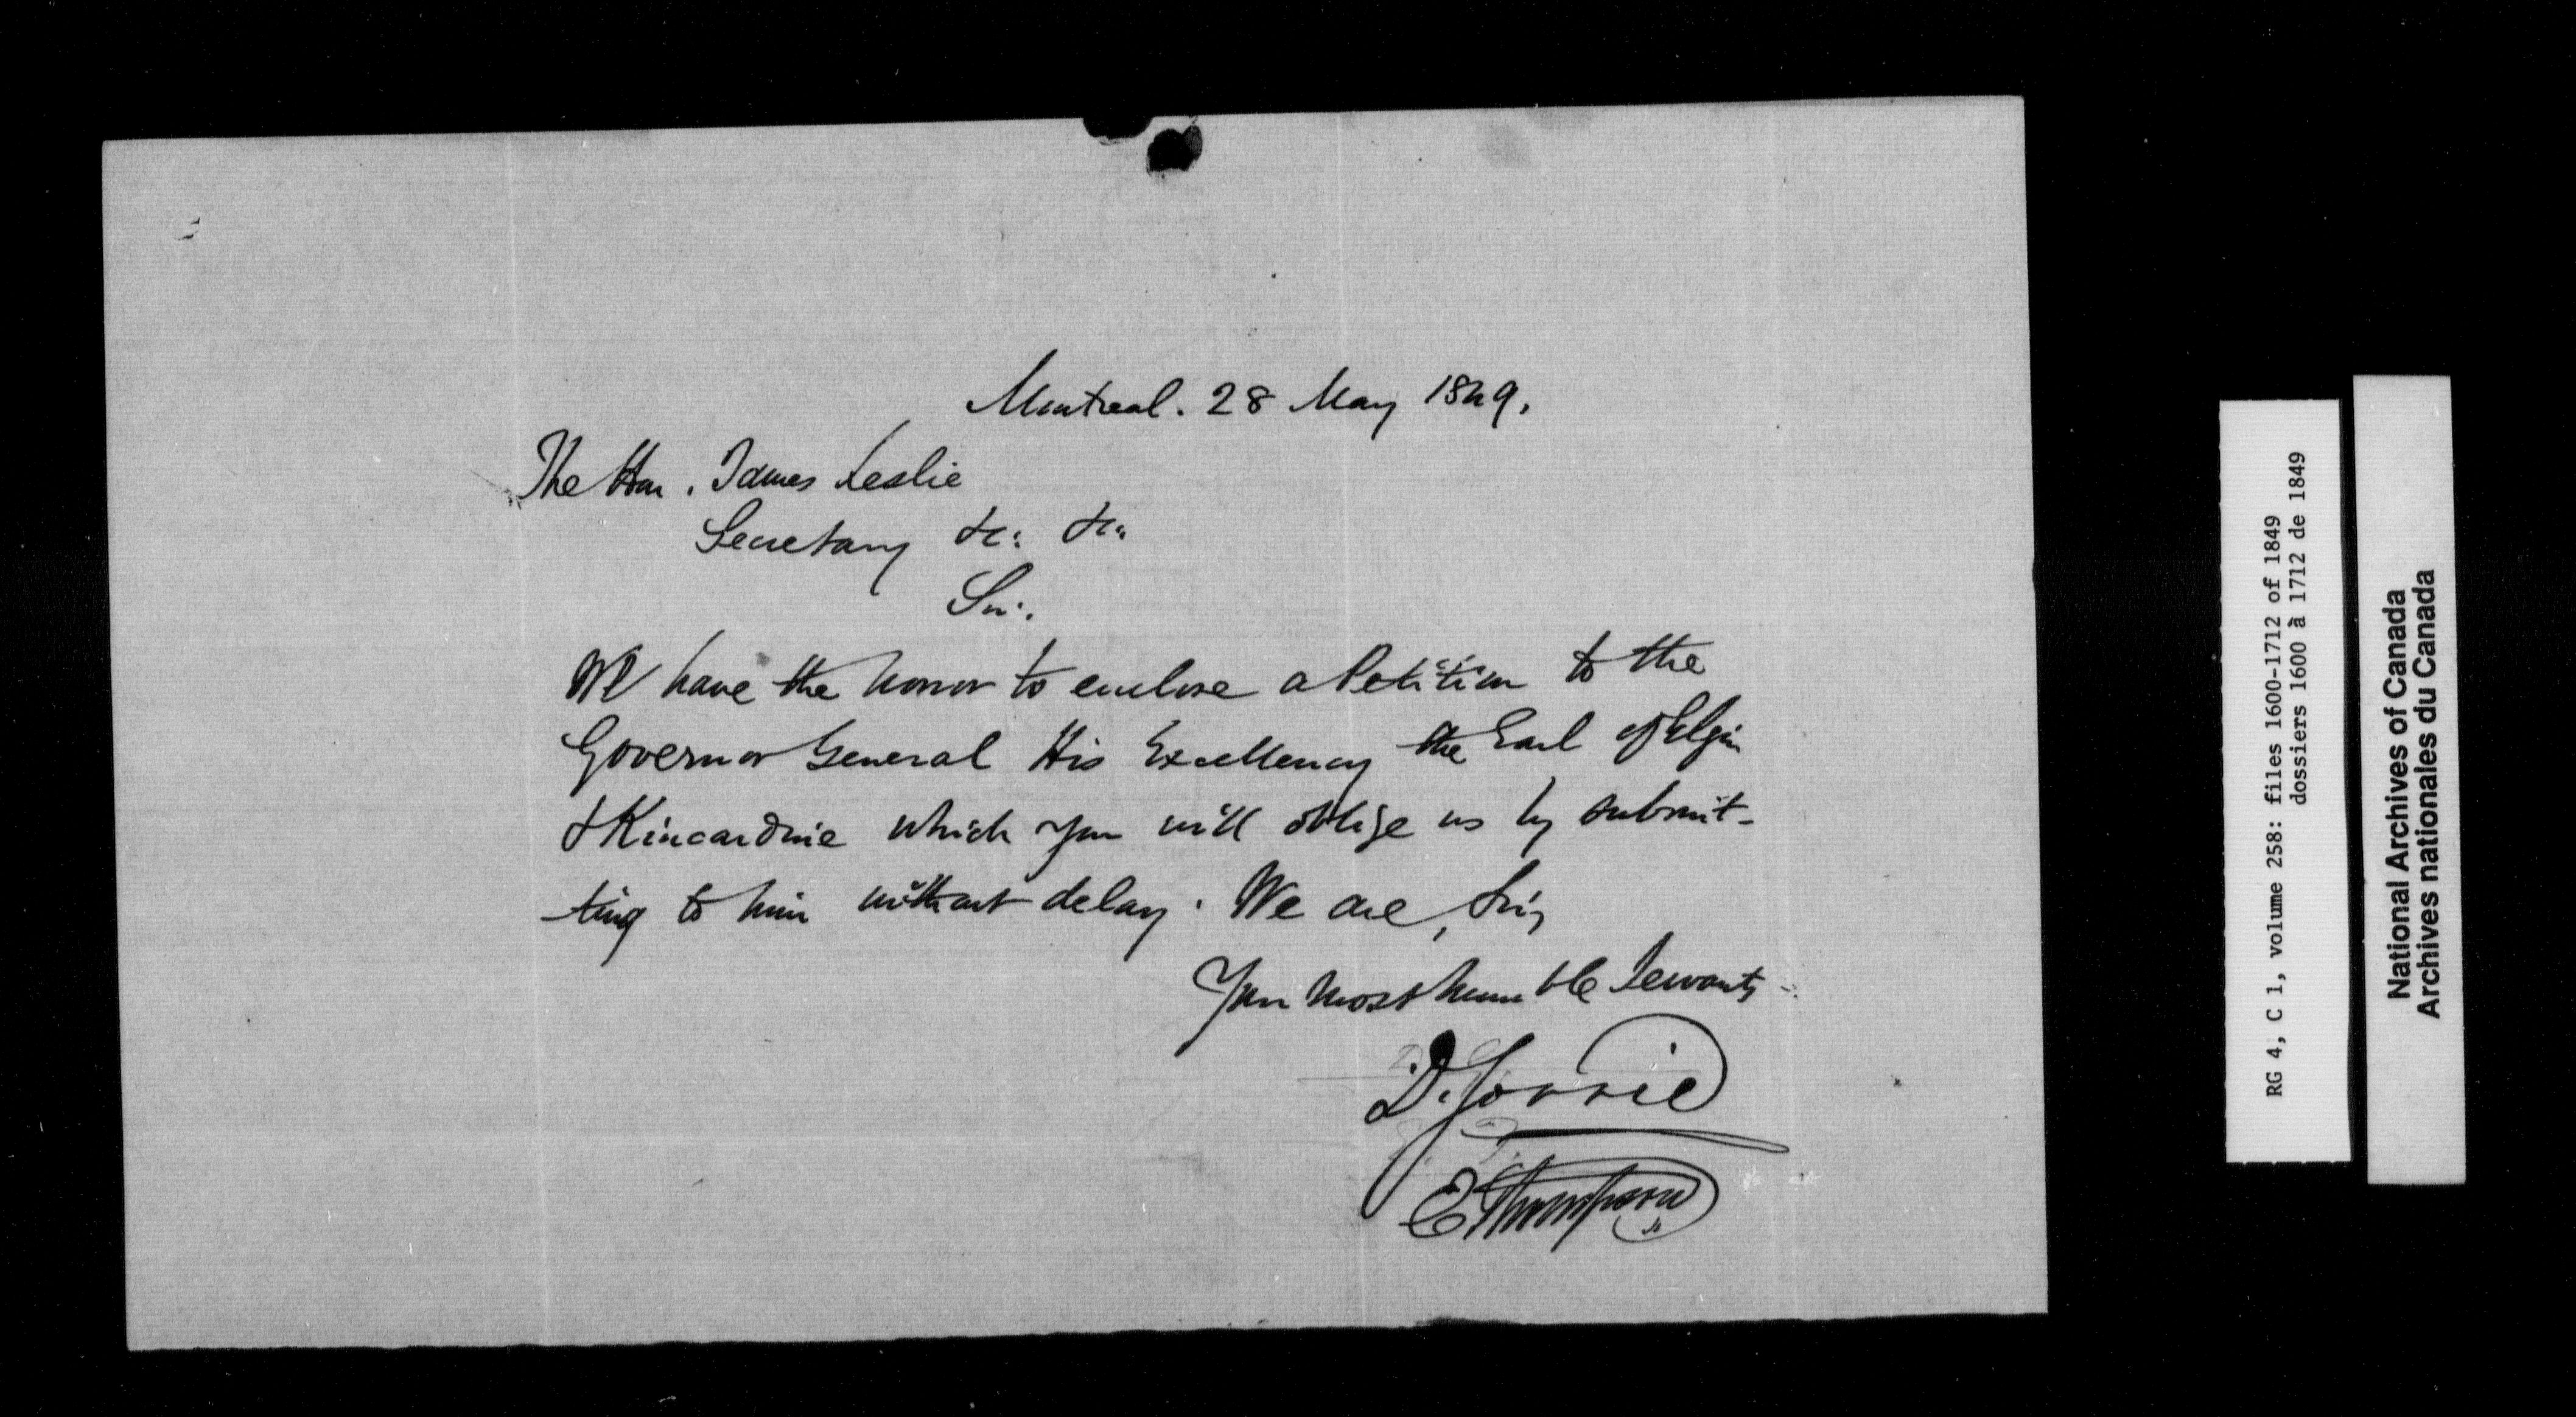 Montreal. 28 May 1849.
The Hon. James Leslie
Secretary &c: &c:
Sir.
We have the honor to enclose a Petition to the
Governor General His Excellency the Earl of Elgin
& Kincardine which you will oblige us by submit-
ting to him without delay. We are, Sir,
Your most humble Servants
D. Gorrie
E Thompson
RG 4, C 1, volume 258: files 1600-1712 of 1849
dossiers 1600 à 1712 de 1849
National Archives of Canada
Archives nationales du Canada